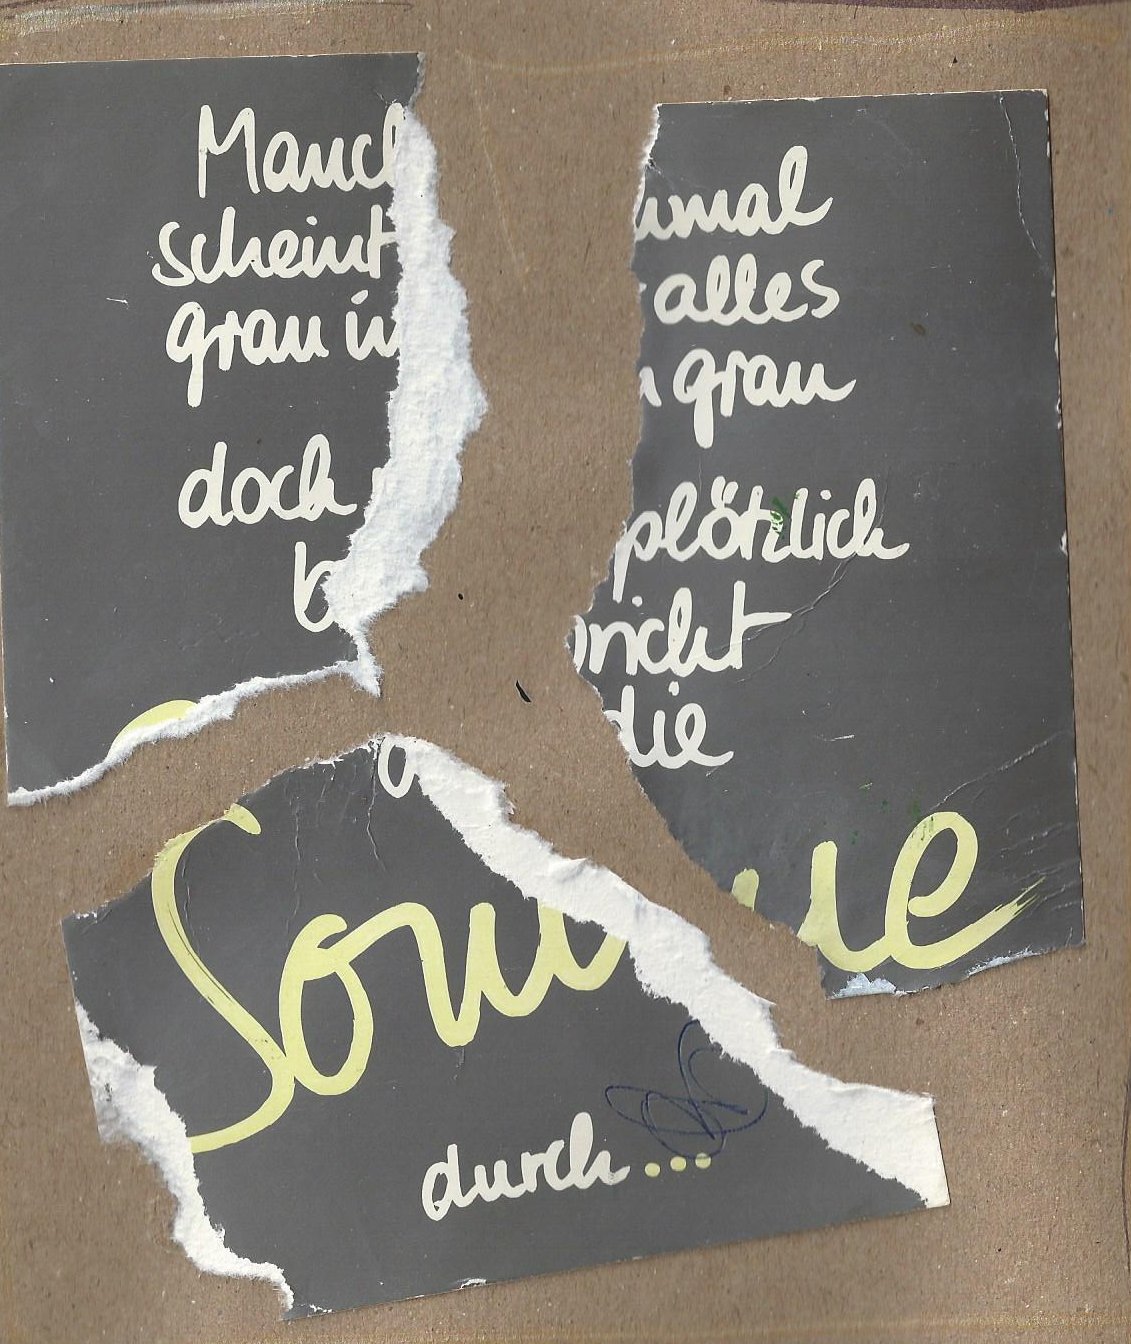 Manchmal
scheint alles
grau in grau
doch plötzlich
bricht
die
Sonne
durch...